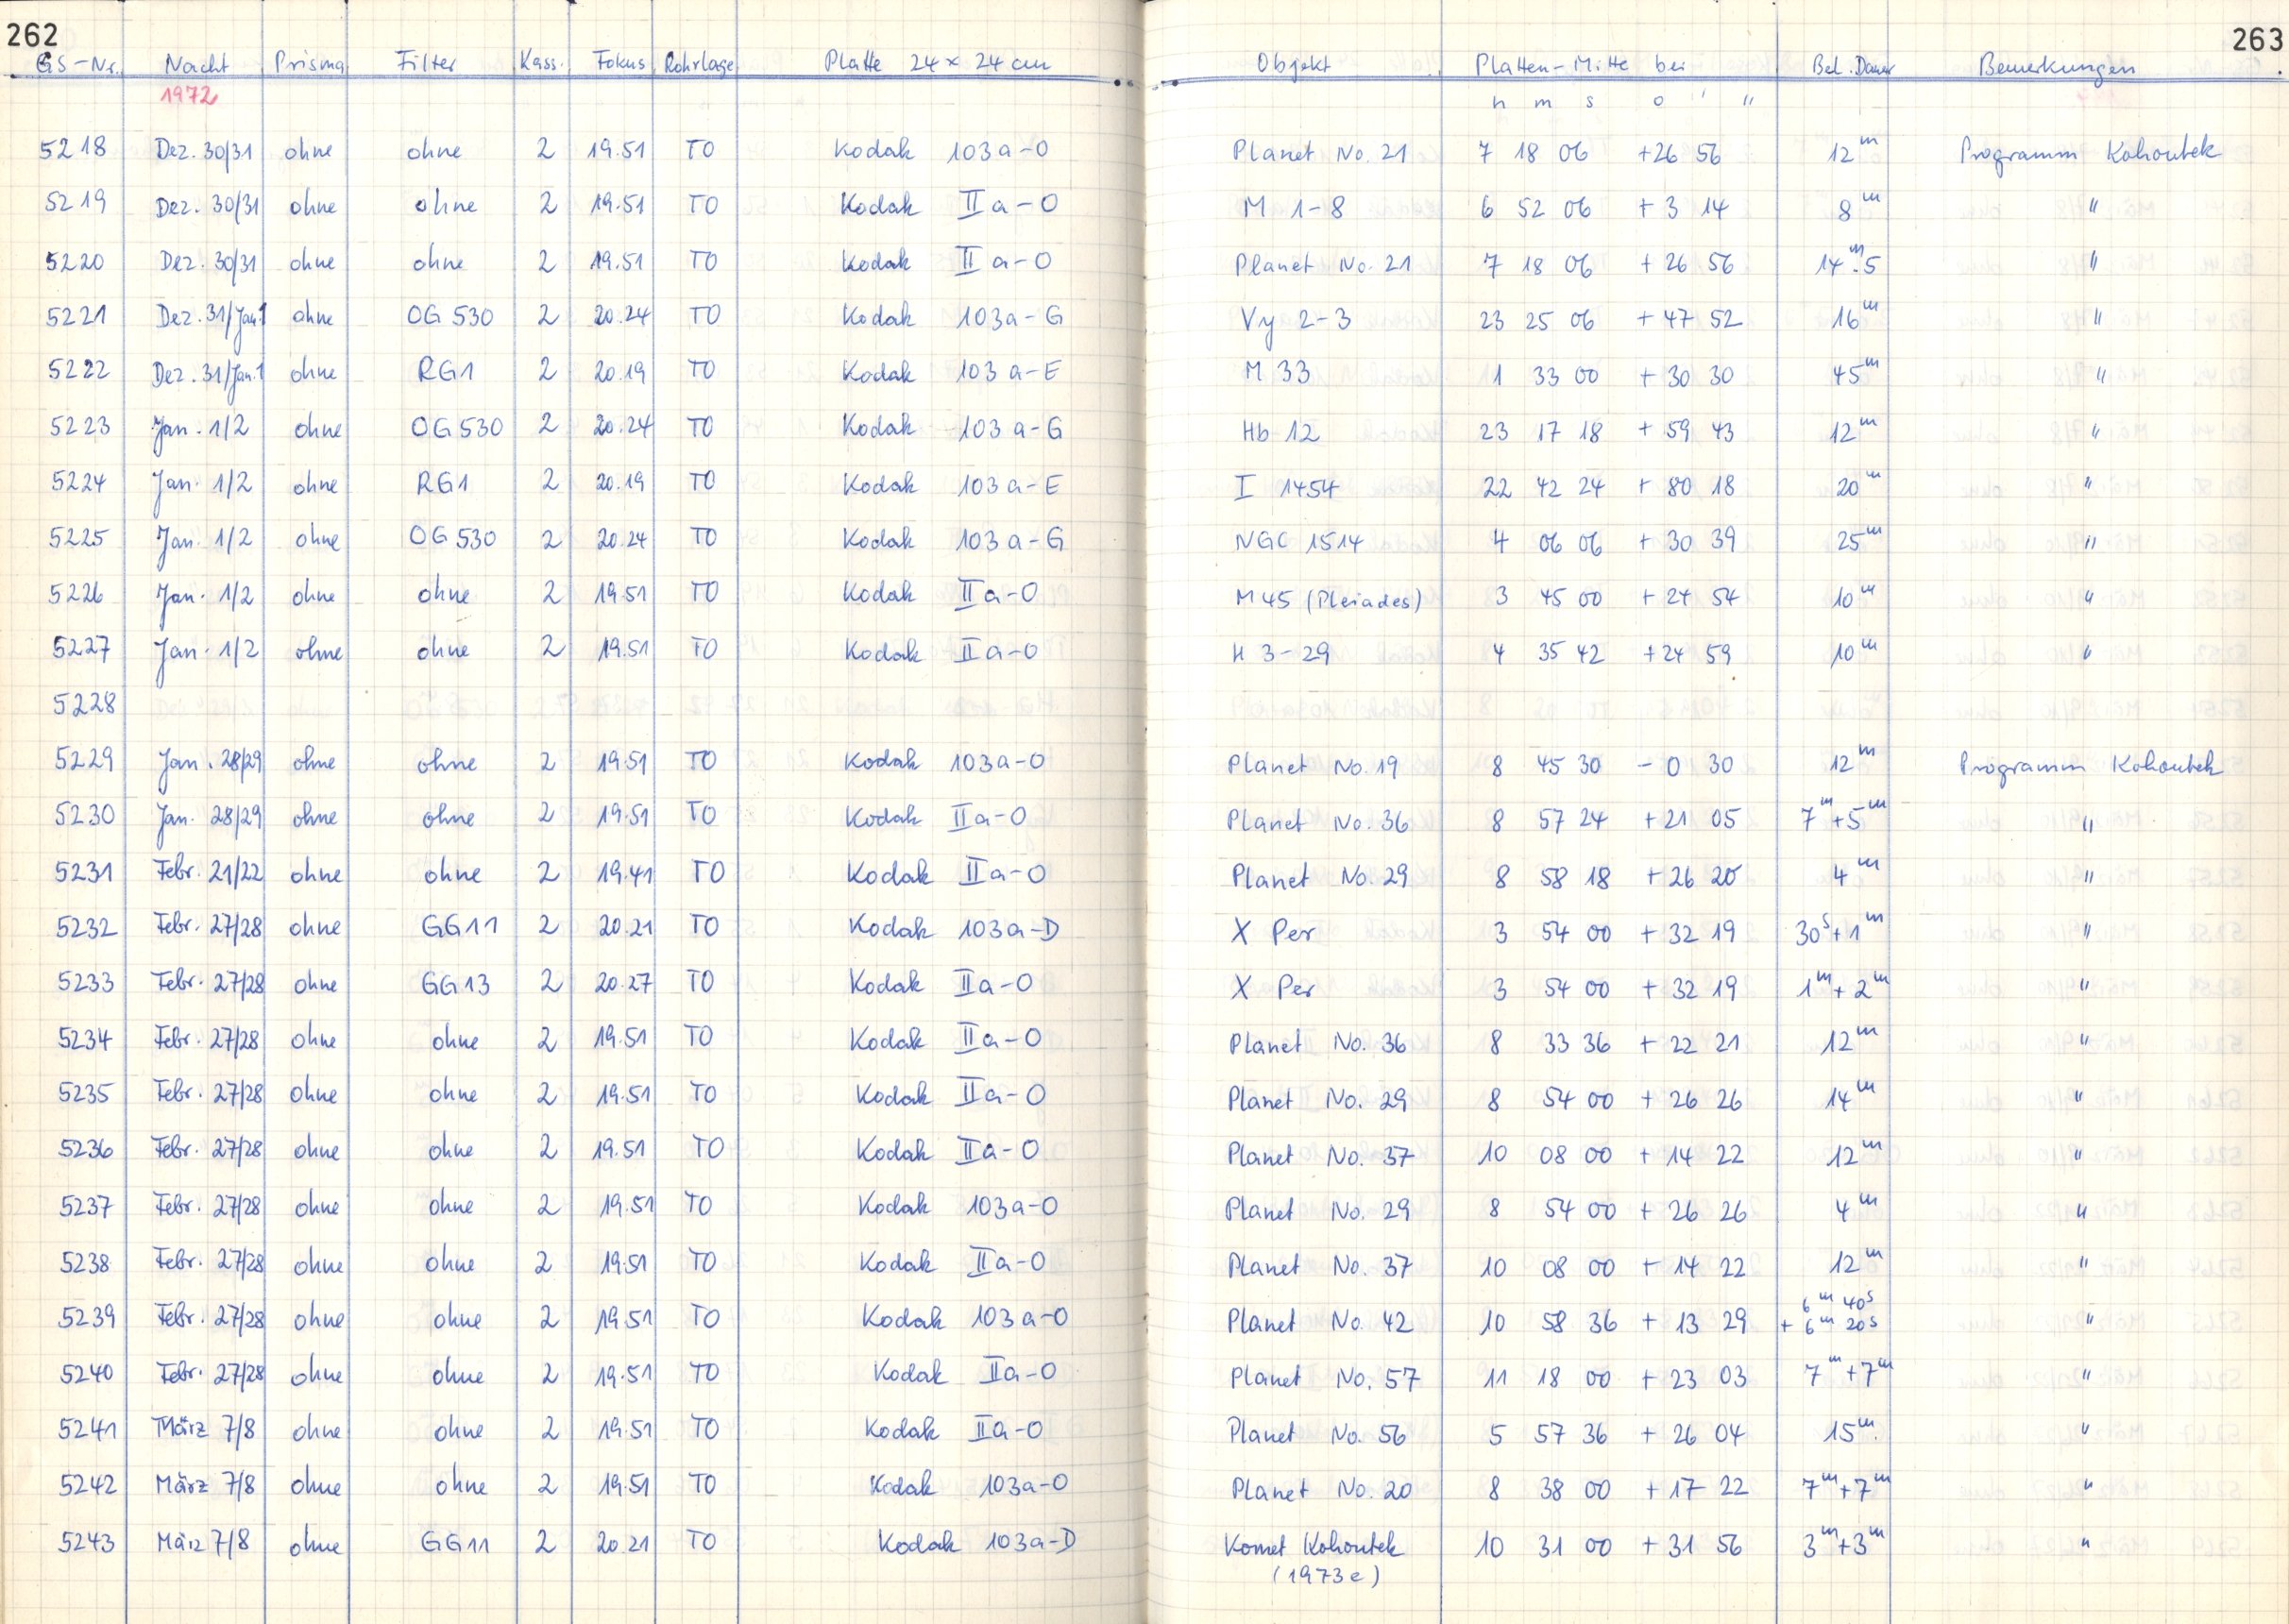 262 263
GS-Nr. Nacht Prisma Filter Kass. Fokus Rohrlage Platte 24 x 24 cm Objekt Platten-Mitte bei Bel.Dauer Bemerkungen
1972 h m s o ' "
5218 Dez. 30/31 ohne ohne 2 19.51 TO Kodak 103a-O Planet No. 21 7 18 06 +26 56 12m Programm Kohoutek
5219 Dez. 30/31 ohne ohne 2 19.51 TO Kodak IIa-O M 1-8 6 52 06 +3 14 8m "
5220 Dez. 30/31 ohne ohne 2 19.51 TO Kodak IIa-O Planet No. 21 7 18 06 +26 56 14m.5 "
5221 Dez. 31/Jan.1 ohne OG 530 2 20.24 TO Kodak 103a-G Vy 2-3 23 25 06 +47 52 16m "
5222 Dez. 31/Jan.1 ohne RG1 2 20.19 TO Kodak 103a-E M 33 1 33 00 +30 30 45m "
5223 Jan. 1/2 ohne OG 530 2 20.24 TO Kodak 103a-G Hb 12 23 17 18 +59 43 12m "
5224 Jan. 1/2 ohne RG1 2 20.19 TO Kodak 103a-E I 1454 22 42 24 +80 18 20m "
5225 Jan. 1/2 ohne OG 530 2 20.24 TO Kodak 103a-G NGC 1514 4 06 06 +30 39 25m "
5226 Jan. 1/2 ohne ohne 2 19.51 TO Kodak IIa-O M45 (Pleiades) 3 45 00 +24 54 10m "
5227 Jan. 1/2 ohne ohne 2 19.51 TO Kodak IIa-O H 3-29 4 35 42 +24 59 10m "
5228
5229 Jan. 28/29 ohne ohne 2 19.51 TO Kodak 103a-O Planet No. 19 8 45 30 -0 30 12m Programm Kohoutek
5230 Jan. 28/29 ohne ohne 2 19.51 TO Kodak IIa-O Planet No. 36 8 57 24 +21 05 7m+5m "
5231 Febr. 21/22 ohne ohne 2 19.41 TO Kodak IIa-O Planet No. 29 8 58 18 +26 20 4m "
5232 Febr. 27/28 ohne GG11 2 20.21 TO Kodak 103a-D X Per 3 54 00 +32 19 30s+1m "
5233 Febr. 27/28 ohne GG13 2 20.27 TO Kodak IIa-O X Per 3 54 00 +32 19 1m+2m "
5234 Febr. 27/28 ohne ohne 2 19.51 TO Kodak IIa-O Planet No. 36 8 33 36 +22 21 12m "
5235 Febr. 27/28 ohne ohne 2 19.51 TO Kodak IIa-O Planet No. 29 8 54 00 +26 26 14m "
5236 Febr. 27/28 ohne ohne 2 19.51 TO Kodak IIa-O Planet No. 37 10 08 00 +14 22 12m "
5237 Febr. 27/28 ohne ohne 2 19.51 TO Kodak 103a-O Planet No. 29 8 54 00 +26 26 4m "
5238 Febr. 27/28 ohne ohne 2 19.51 TO Kodak IIa-O Planet No. 37 10 08 00 +14 22 12m "
5239 Febr. 27/28 ohne ohne 2 19.51 TO Kodak 103a-O Planet No. 42 10 58 36 +13 29 6m 40s + 6m 20s "
5240 Febr. 27/28 ohne ohne 2 19.51 TO Kodak IIa-O Planet No. 57 11 18 00 +23 03 7m+7m "
5241 März 7/8 ohne ohne 2 19.51 TO Kodak IIa-O Planet No. 56 5 57 36 +26 04 15m. "
5242 März 7/8 ohne ohne 2 19.51 TO Kodak 103a-O Planet No. 20 8 38 00 +17 22 7m+7m "
5243 März 7/8 ohne GG11 2 20.21 TO Kodak 103a-D Komet Kohoutek 10 31 00 +31 56 3m+3m "
(1973e)